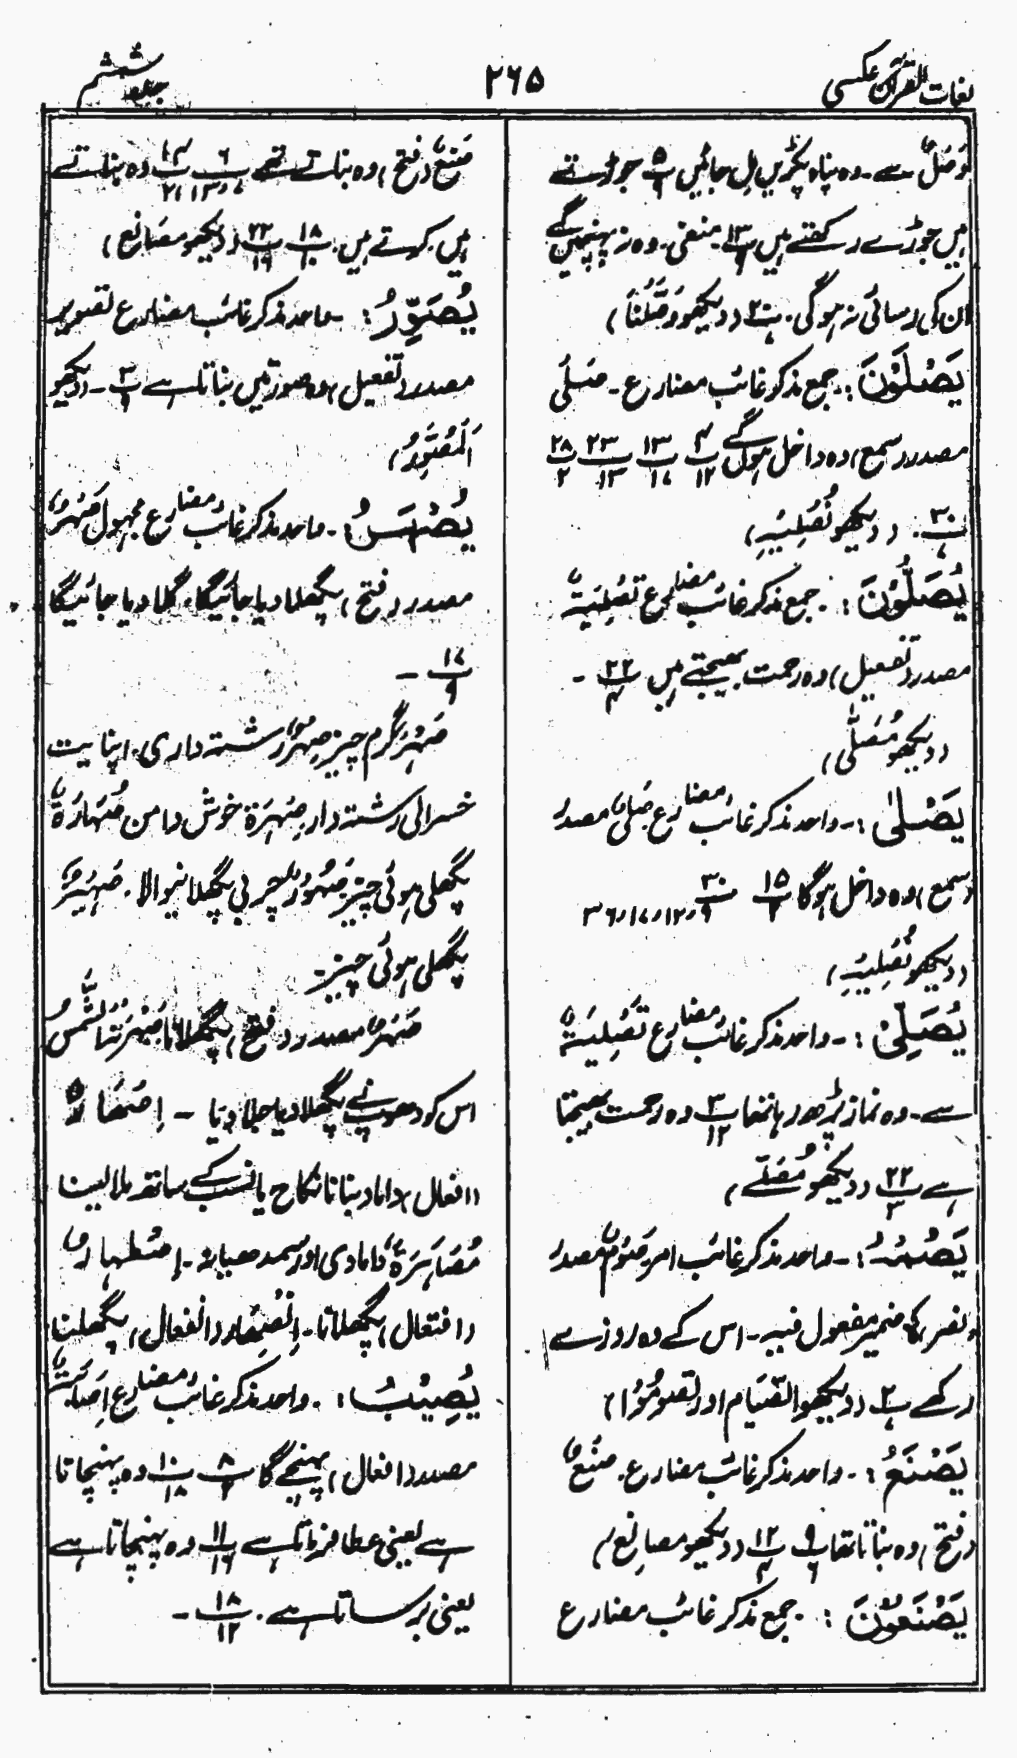 لغات القرآن عکسی
۲۶۵
جلد ششم
وَصْلٌ سے۔ وہ پناہ پکڑیں مل جائیں پ ۵/۹ جوڑتے
ہیں جوڑے رکھتے ہیں پ ۱۳/۹ منفی۔ وہ نہ پہنچیں گے
ان کی رسائی نہ ہوگی۔ (دیکھو وَصَّلْنَا)
یَصْلَوْنَ :۔ جمع مذکر غائب مضارع۔ صَلْیٌ
مصدر (سمع) وہ داخل ہوں گے پ ۴/۱۲ پ ۱۳/۱۷ پ ۲۳/۱۳ پ ۲۸/۲
پ ۳۰ . (دیکھو تَصْلِیَۃ)
یُصَلُّوْنَ :۔ جمع مذکر غائب مضارع تَصْلِیَۃٌ
مصدر (تفعیل) وہ رحمت بھیجتے ہیں پ ۲۲/۴ ۔
(دیکھو مُصَلًّی)
یَصْلٰی :۔ واحد مذکر غائب مضارع صَلْیٌ مصدر
(سمع) وہ داخل ہوگا پ ۱۵/۲ پ ۳۰/۹ ،۱۲،۱۷،۳۶
(دیکھو تَصْلِیَۃ)
یُصَلِّیْ :۔ واحد مذکر غائب مضارع تَصْلِیَۃٌ
سے۔ وہ نماز پڑھ رہا تھا پ ۳/۱۲ وہ رحمت بھیجتا
ہے پ ۲۲/۳ (دیکھو مُصَلّٰے)
یَصُمْہُ :۔ واحد مذکر غائب امر صَوْمٌ مصدر
(نصر) ہٗ ضمیر مفعول فیہ۔ اس کے وہ روزے
رکھے پ ۲ (دیکھو الصِّیَام اور تَصُوْمُوْا)
یَصْنَعُ :۔ واحد مذکر غائب مضارع۔ صُنْعٌ
(فتح) وہ بناتا تھا پ ۹/۶ پ ۱۲/۴ (دیکھو مصانع)
یَصْنَعُوْنَ :۔ جمع مذکر غائب مضارع
صُنْعٌ (فتح) وہ بناتے تھے پ ۶/۱۳،۷ پ ۱۴/۲۱ وہ بناتے
ہیں۔ کرتے ہیں۔ پ ۱۸/۱۰ پ ۲۲/۱۶ (دیکھو مصانع)
یُصَوِّرُ :۔ واحد مذکر غائب مضارع تصویر
مصدر (تفعیل) وہ صورتیں بناتا ہے پ ۳/۹ ۔ (دیکھو
اَلْمُصَوِّرُ)
یُصْہَرُ :۔ واحد مذکر غائب مضارع مجہول صَہْرٌ
مصدر (فتح) پگھلا دیا جائیگا، گلا دیا جائیگا
پ ۱۷/۹ ۔
صَہْرٌ گرم چیز صِہْرٌ رشتہ داری۔ اپنایت
خسرالی رشتہ دار صِہْرَۃ خوش دامن صُہَارَۃٌ
پگھلی ہوئی چیز صَہُوْرٌ چربی پگھلانیوالا۔ صَہِیْرٌ
پگھلی ہوئی چیز۔
صَہْرٌ مصدر (فتح) پگھلانا صَہَرَتْنَا الشَّمْسُ
اس کو دھوپ نے پگھلا دیا جلا دیا ۔ اِصْہَارٌ
(افعال) داماد بنانا نکاح یا نسب کے ساتھ ملا لینا
مُصَاہَرَۃٌ دامادی اور سمدھیانہ۔ اِصْطِہَارٌ
(افتعال) پگھلانا۔ اِنْصِہَار (انفعال) پگھلنا
یُصِیْبُ :۔ واحد مذکر غائب مضارع اِصَابَۃٌ
مصدر (افعال) پہنچے گا پ ۸/۲ پ ۱۰/۱۸ وہ پہنچاتا
ہے یعنی عطا فرماتا ہے پ ۱۱/۱۶ وہ پہنچاتا ہے
یعنی برساتا ہے۔ پ ۱۸/۱۲ ۔